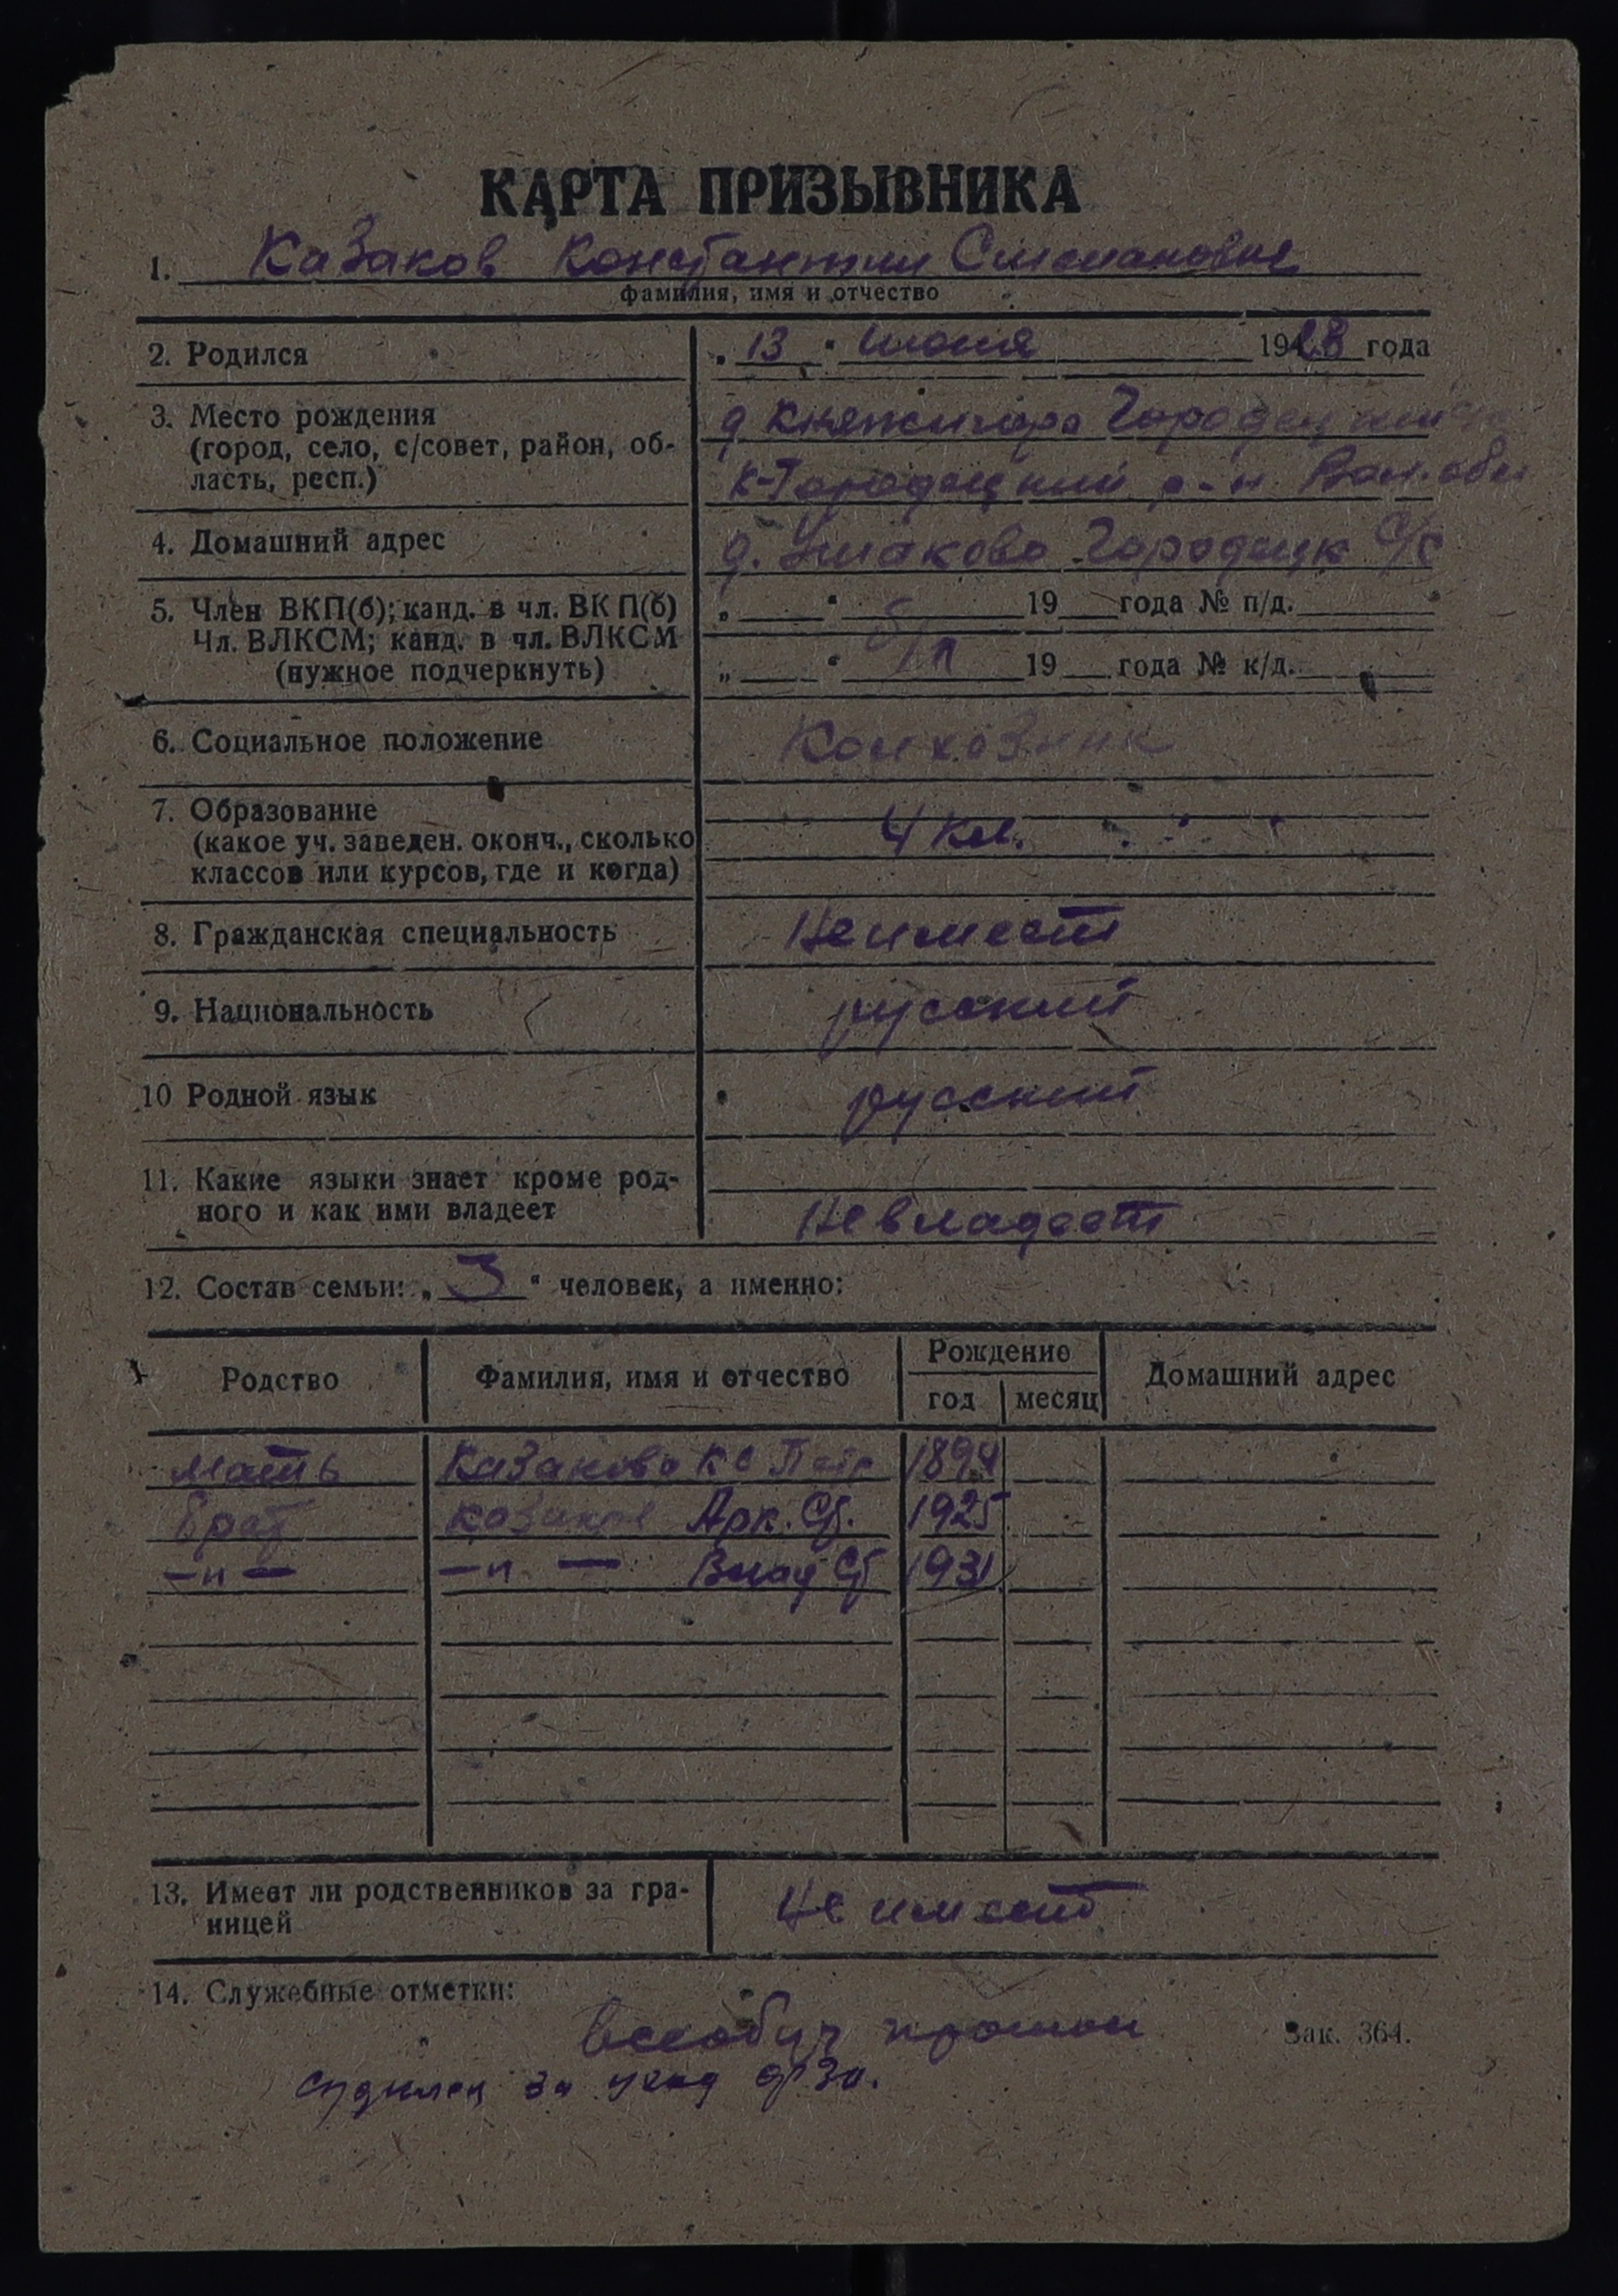 КАРТА ПРИЗЫВНИКА
1. Казаков Константин Степанович
фамилия, имя и отчество
2. Родился „ 13 “ июня 1928 года
3. Место рождения (город, село, с/совет, район, область, респ.)
д Княжигора Городецкий
К-Городецкий р-н Вол. обл
4. Домашний адрес д. Ушаково Городецк с/с
5. Член ВКП(б); канд. в чл. ВКП(б) „ “ 19 года № п/д.
Чл. ВЛКСМ; канд. в чл. ВЛКСМ б/п
(нужное подчеркнуть) „ “ 19 года № к/д.
6. Социальное положение Колхозник
7. Образование
(какое уч. заведен. оконч., сколько 4 кл.
классов или курсов, где и когда)
8. Гражданская специальность Не имеет
9. Национальность русский
10 Родной язык русский
11. Какие языки знает кроме род-
ного и как ими владеет Не владеет
12. Состав семьи: „ 3 “ человек, а именно:
Родство Фамилия, имя и отчество Рождение Домашний адрес
год месяц
мать Казакова 1894
брат Казаков Арк. Ст. 1925
—и— —и— Влад Ст 1931
13. Имеет ли родственников за гра-
ницей Не имеет
14. Служебные отметки:
Всеобуч прошел Зак. 364.
судился за уход